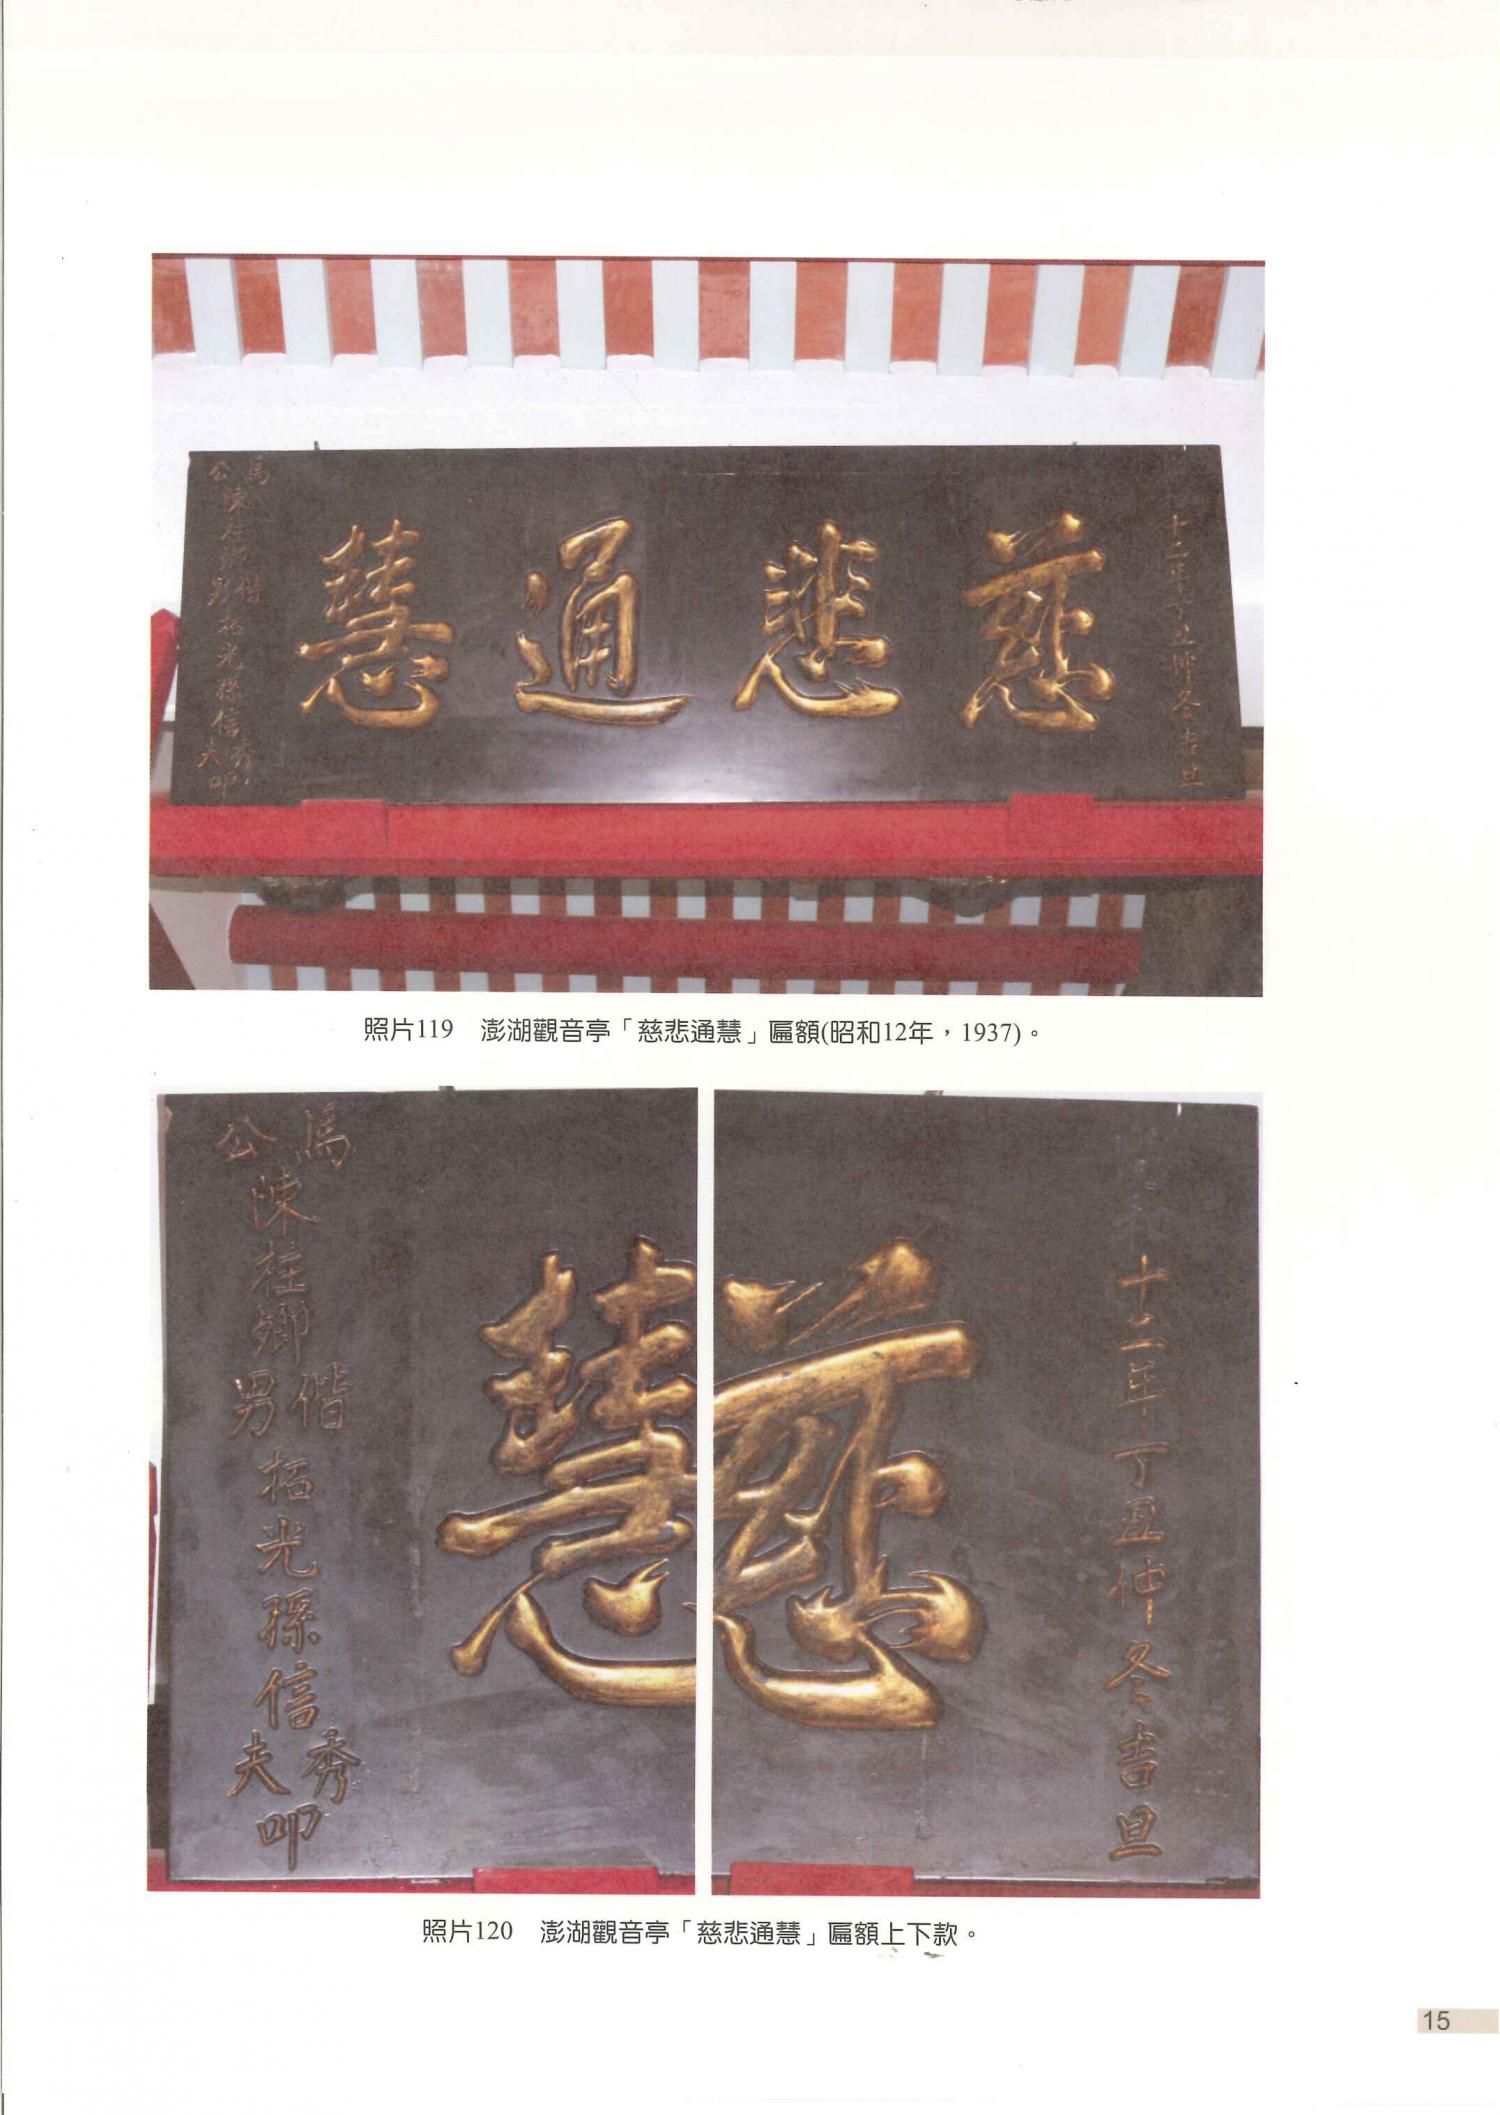 慈悲通慧
十二年丁丑仲冬吉旦
馬公陳桂卿偕男拓光孫信秀夫叩
照片119 澎湖觀音亭「慈悲通慧」匾額(昭和12年，1937)。
馬公陳桂卿偕男拓光孫信秀夫叩
慧
慈
十二年丁丑仲冬吉旦
照片120 澎湖觀音亭「慈悲通慧」匾額上下款。
15